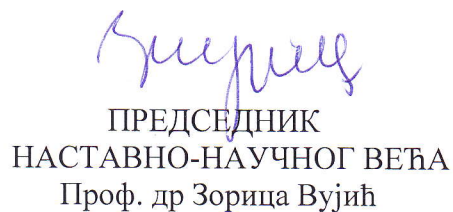 ПРЕДСЕДНИК
НАСТАВНО-НАУЧНОГ ВЕЋА
Проф. др Зорица Вујић